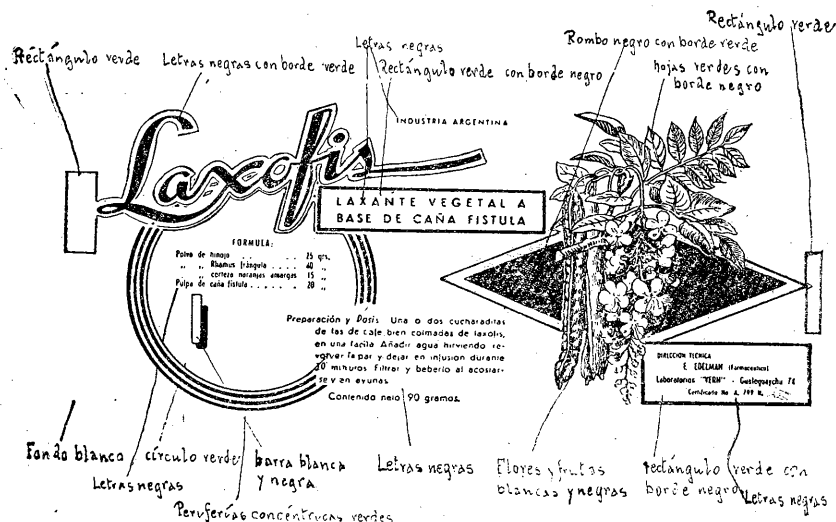 Rectángulo verde
Letras negras con borde verde
Letras negras
Rectángulo verde con borde negro
Rombo negro con borde verde
hojas verdes con
borde negro
Rectángulo verde
INDUSTRIA ARGENTINA
Laxofis
LAXANTE VEGETAL A
BASE DE CAÑA FISTULA
FORMULA:
Polvo de hinojo . . . . . . 25 grs.
„ „ Rhamus frángula . . . . 40 „
„ „ corteza naranjas amargas 15 „
Pulpa de caña fístula . . . . . 20 „
Preparación y Dosis Una o dos cucharaditas
de las de café bien colmadas de laxofis,
en una tacita Añadir agua hirviendo re-
volver tapar y dejar en infusion durante
10 minutos Filtrar y beberlo al acostar-
se y en ayunas
Contenido neto 90 gramos.
DIRECCION TECNICA
E. EDELMAN (Farmacéutico)
Laboratorios "YERN" - Gualeguaychu 74
Certificado No A. 799 N.
Fondo blanco
círculo verde
barra blanca
y negra
Letras negras
Letras negras
Flores y frutas
blancas y negras
rectángulo verde con
borde negro
Letras negras
Periferías concéntricas verdes